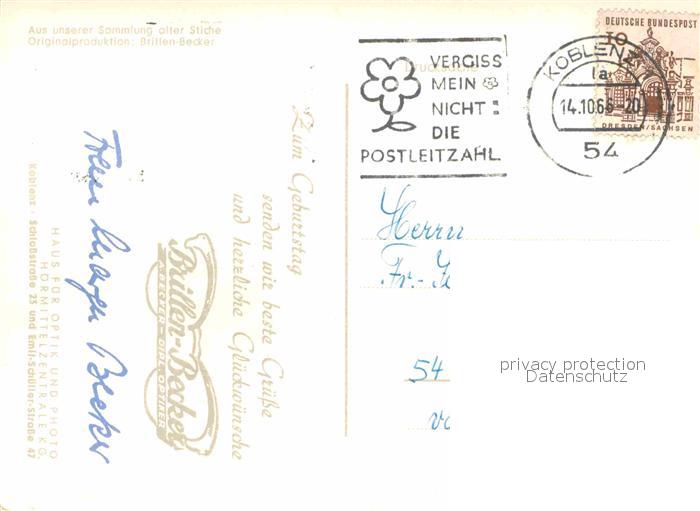 Aus unserer Sammlung alter Stiche
Originalproduktion: Brillen-Becker
Zum Geburtstag
senden wir beste Grüße
und herzliche Glückwünsche
Brillen-Becker
BECKER · DIPL. OPTIKER
HAUS FÜR OPTIK UND PHOTO
HÖRMITTELZENTRALE KG.
Koblenz · Schloßstraße 23 und Emil-Schüller-Straße 47
Becker
Drucksache
VERGISS
MEIN
NICHT:
DIE
POSTLEITZAHL
KOBLENZ
1a
14.10.66-20
54
DEUTSCHE BUNDESPOST
10
DRESDEN/SACHSEN
Herrn
Fr.-
54
privacy protection
Datenschutz